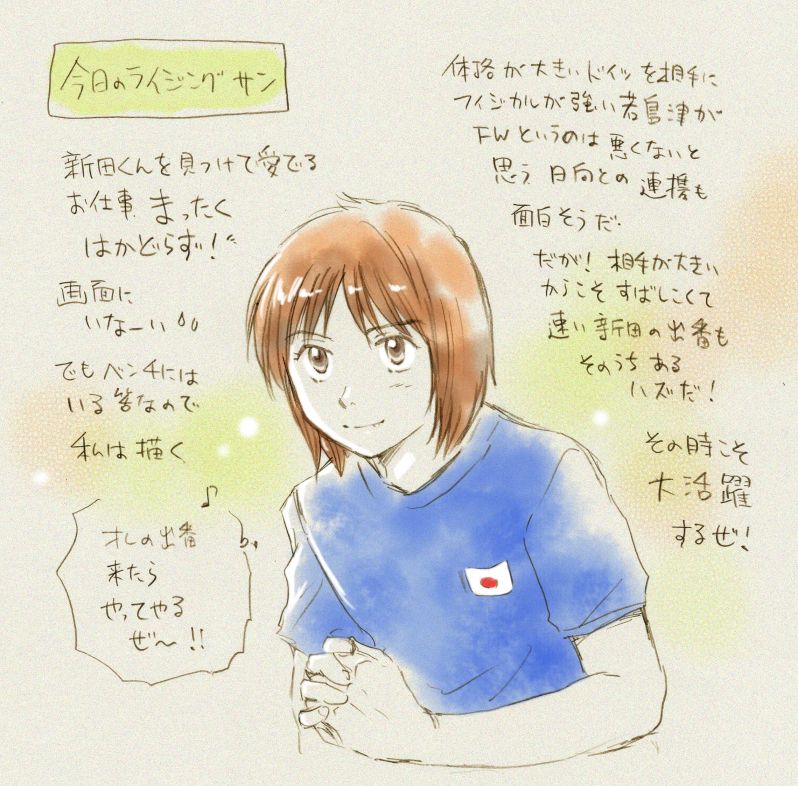 今日のライジングサン
新田くんを見つけて愛でる
お仕事 まったく
はかどらず!
画面に
いなーい
でもベンチには
いる筈なので
私は描く
オレの出番
来たら
やってやる
ぜ〜!!
体格が大きいドイツを相手に
フィジカルが強い若島津が
FWというのは悪くないと
思う 日向との連携も
面白そうだ.
だが! 相手が大きい
からこそすばしこくて
速い新田の出番も
そのうちある
ハズだ!
その時こそ
大活躍
するぜ!